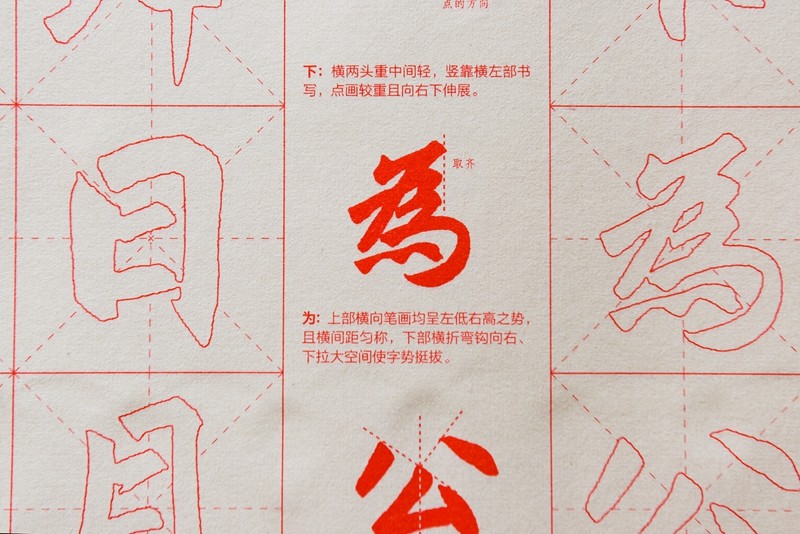 点的方向
下：横两头重中间轻，竖靠横左部书
写，点画较重且向右下伸展。
為
取齐
日
為
为：上部横向笔画均呈左低右高之势，
且横间距匀称，下部横折弯钩向右、
下拉大空间使字势挺拔。
公
公